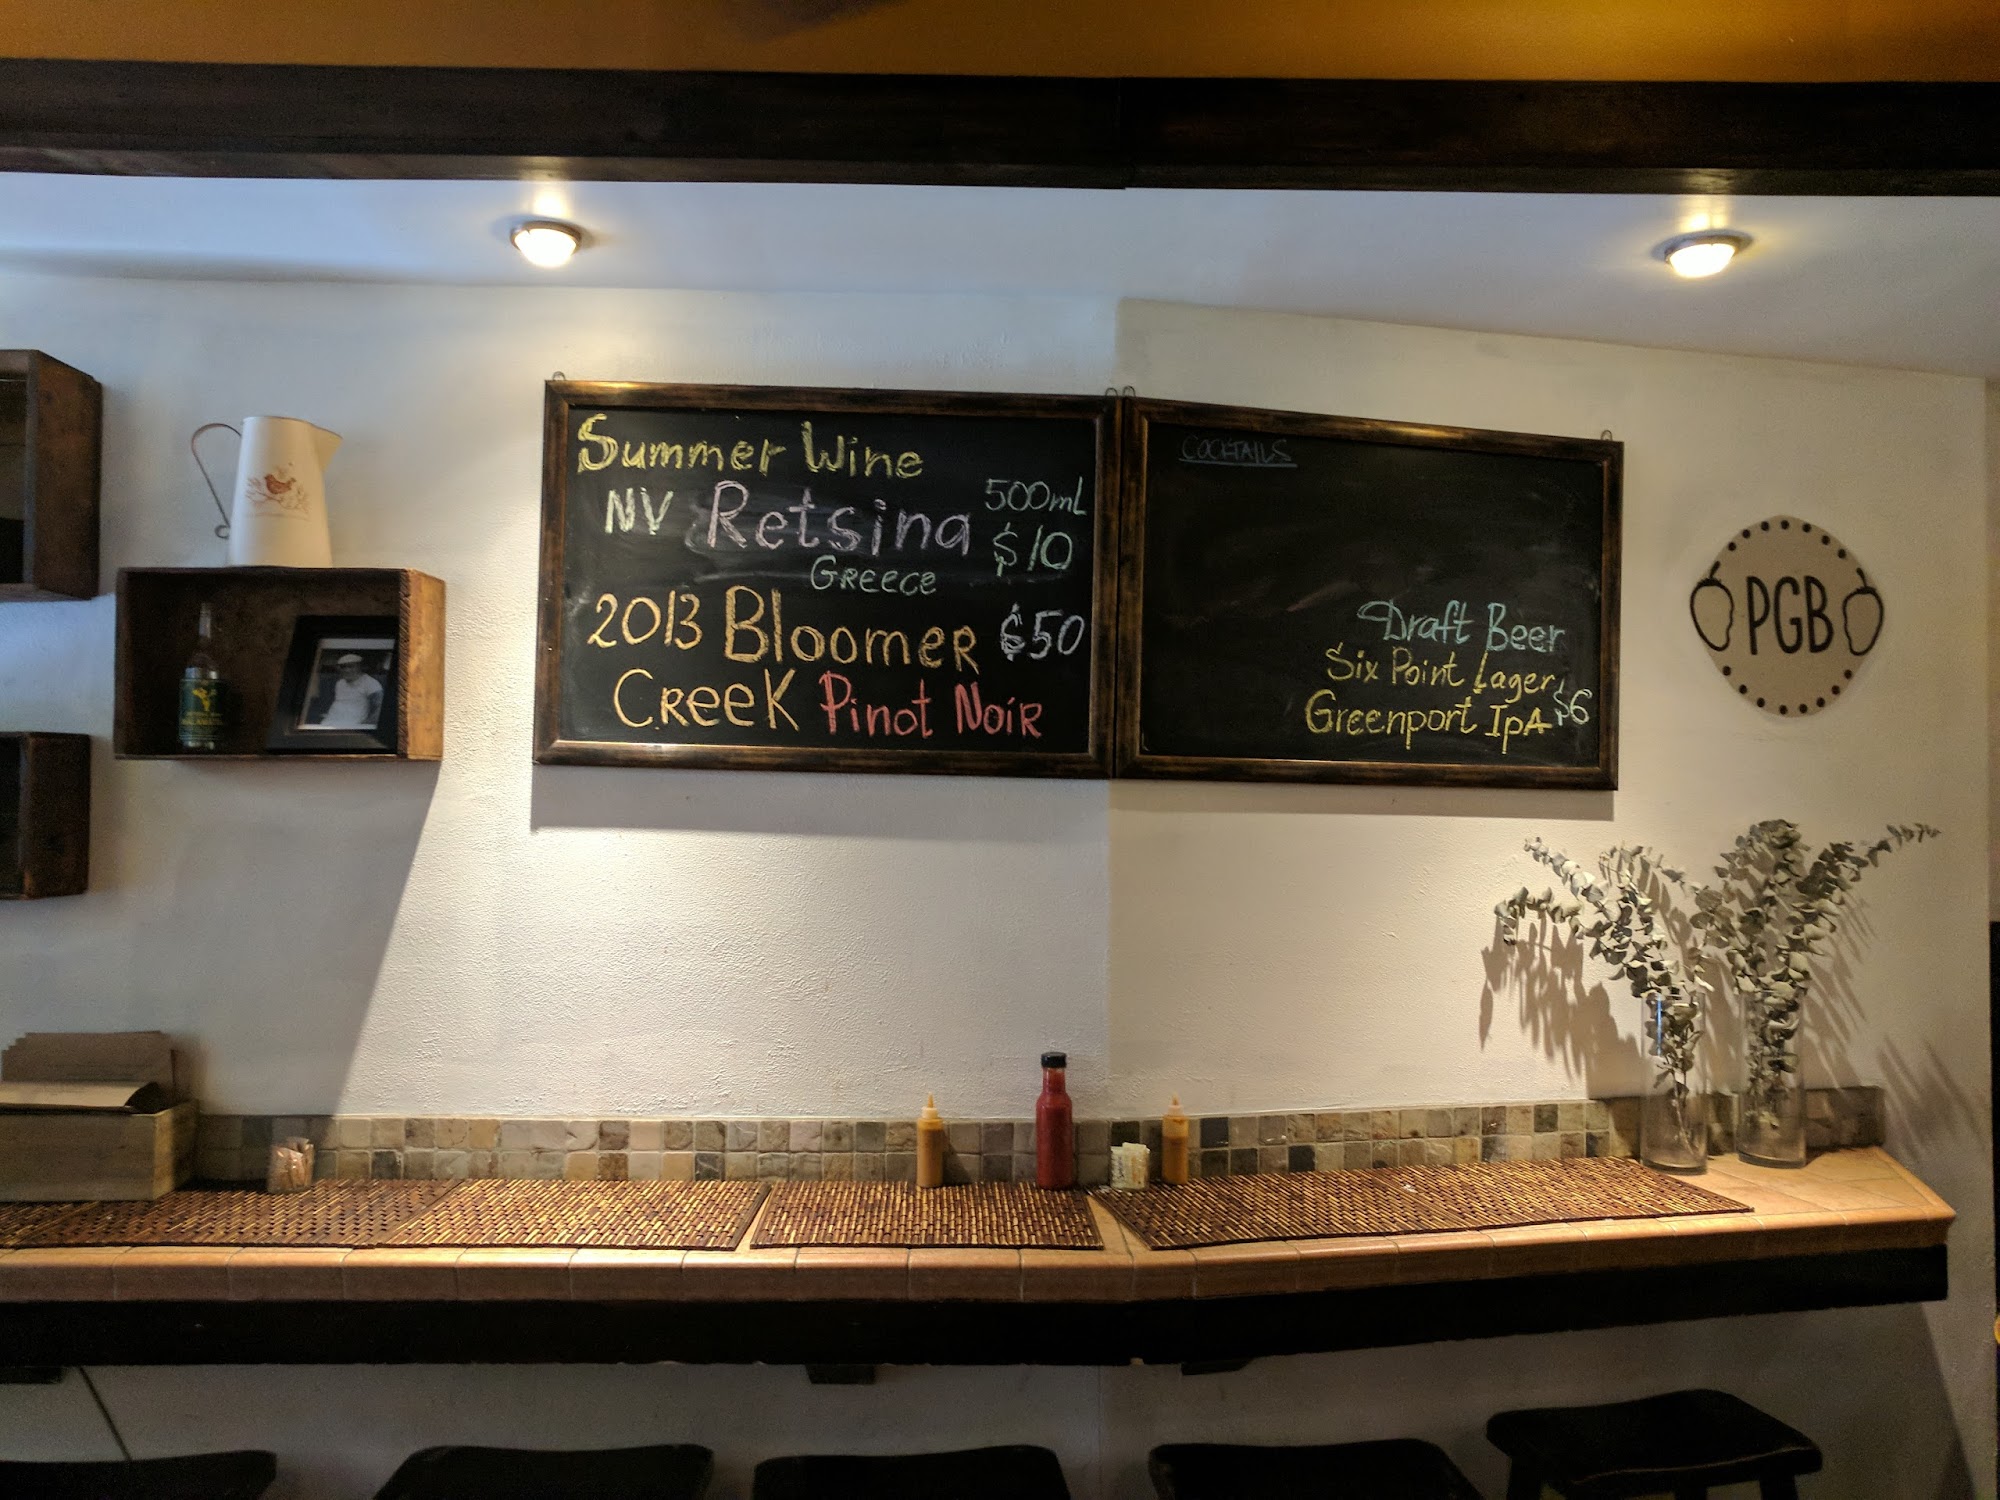 Summer Wine
NV Retsina 500mL
$10
Greece
2013 Bloomer $50
Creek Pinot Noir
COCKTAILS
Draft Beer
Six Point Lager
Greenport IpA $6
PGB